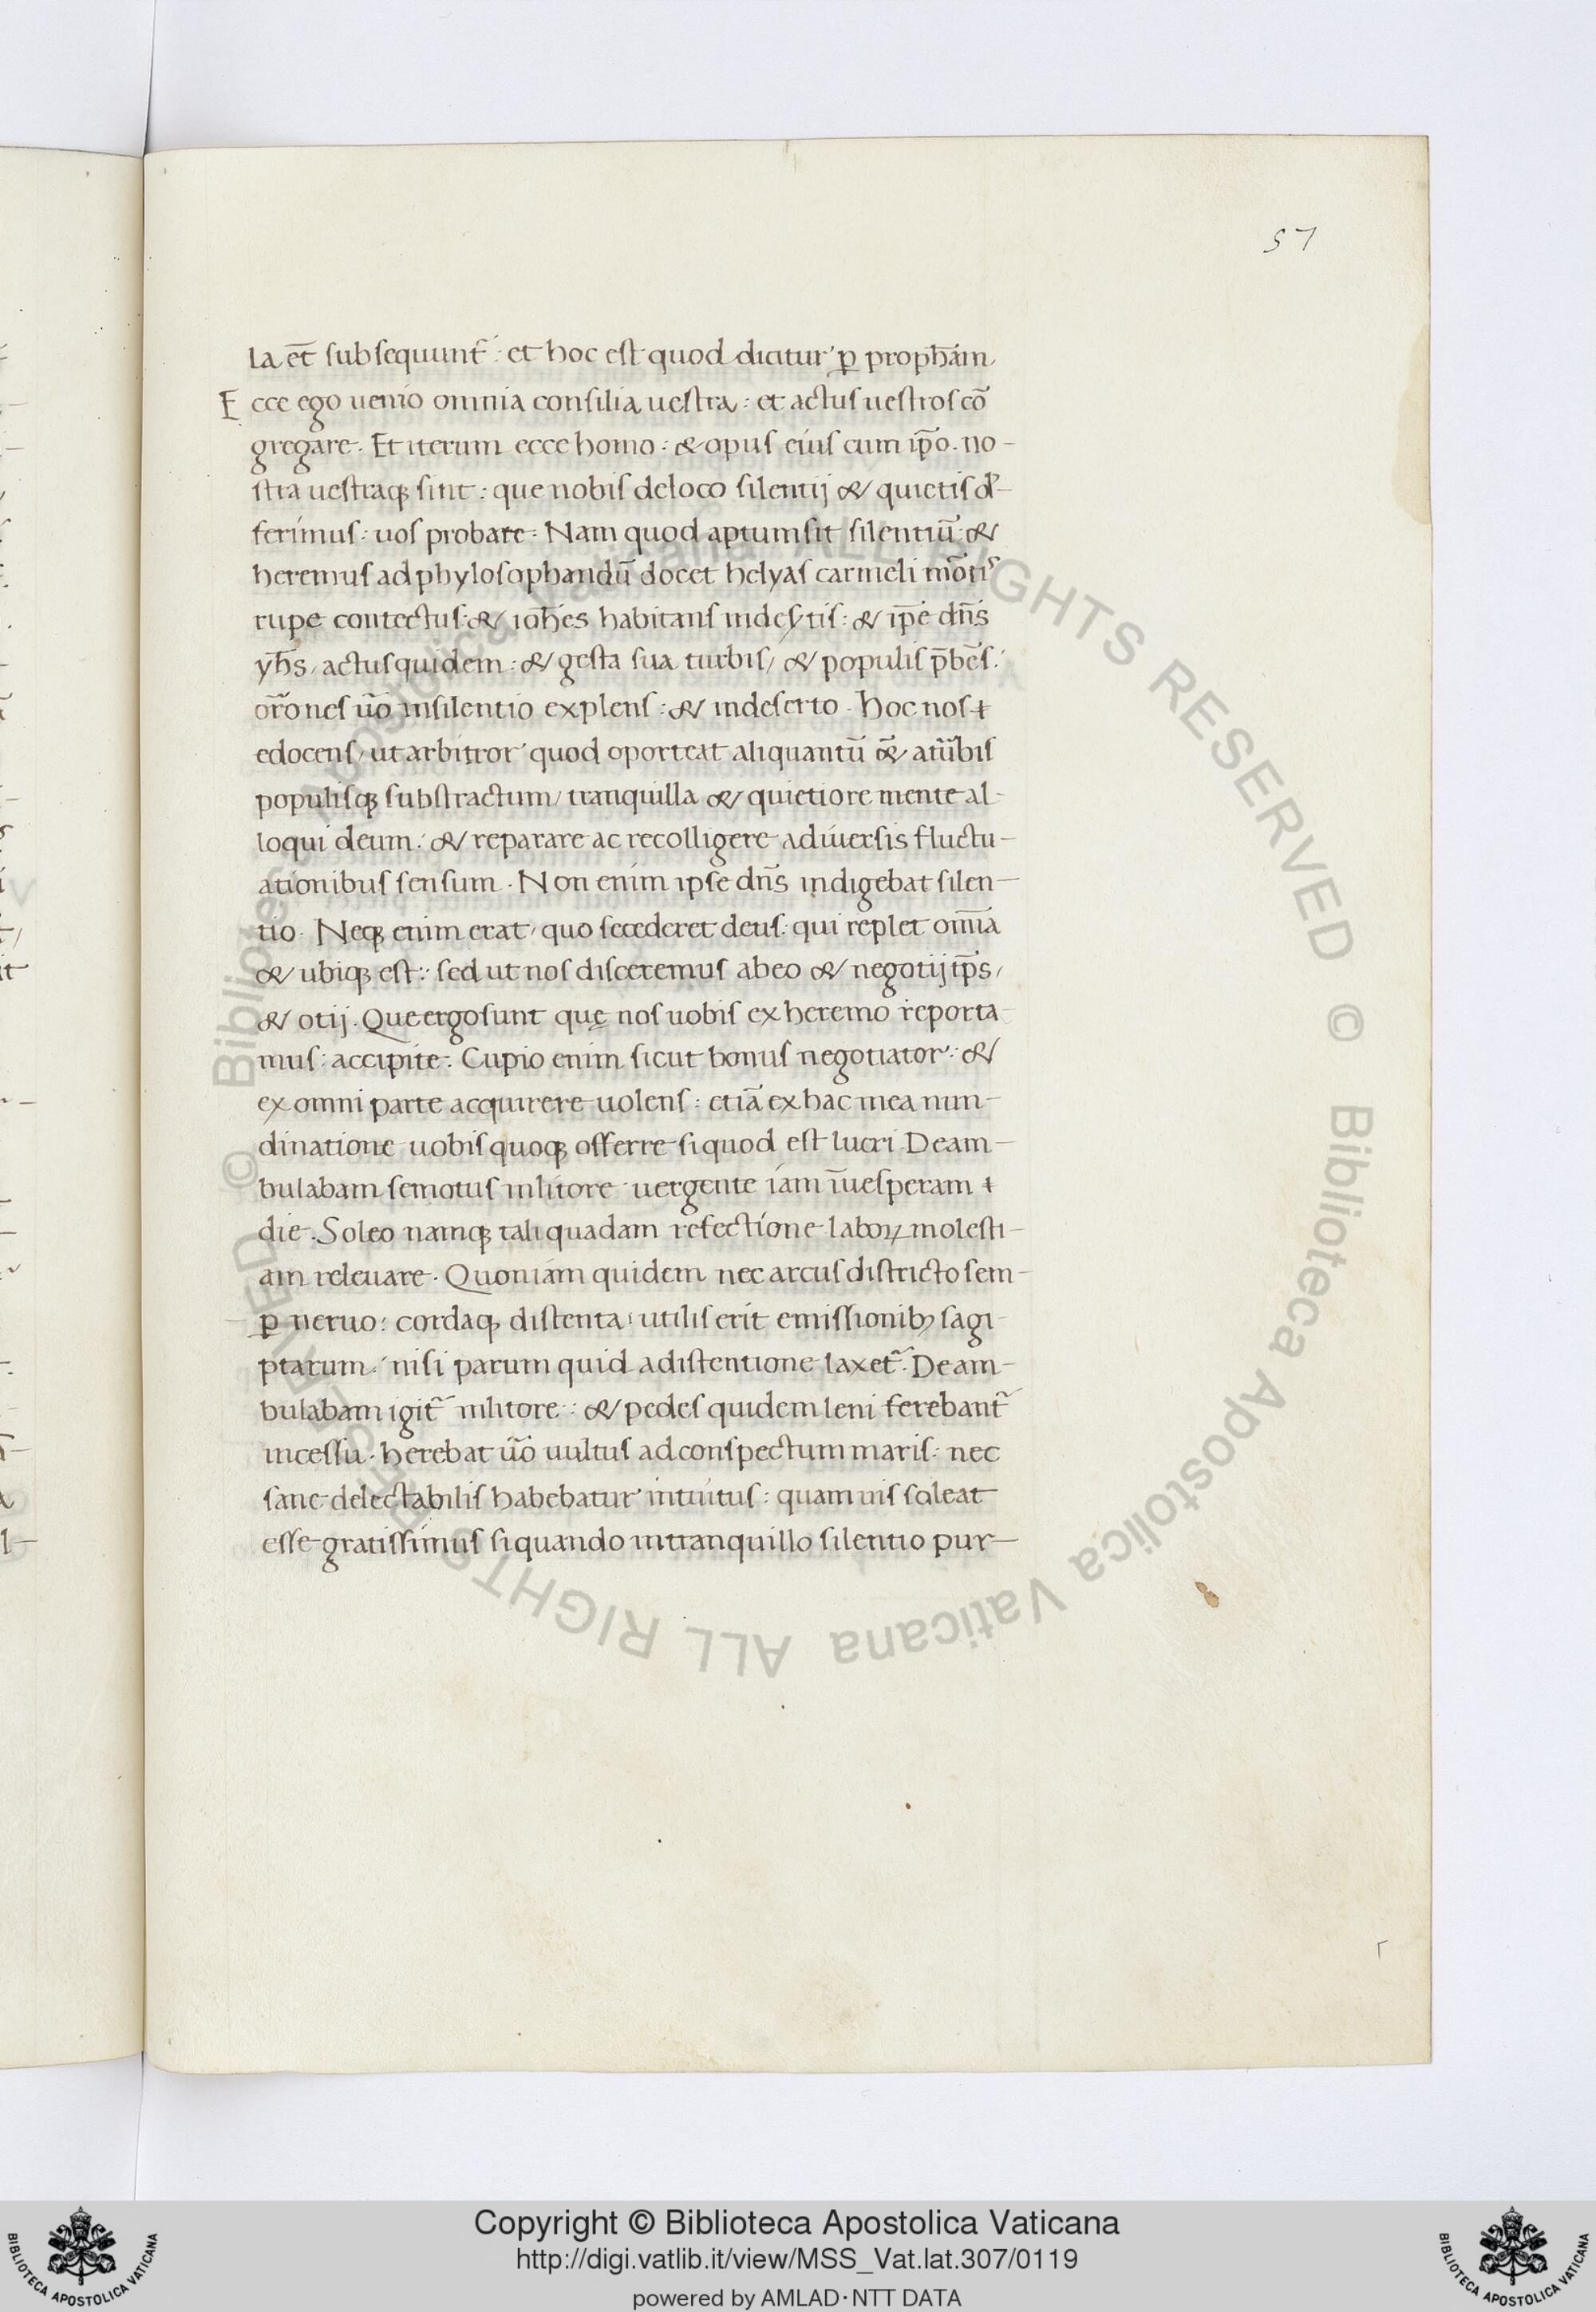 57
la et̄ subsequunt᷑: et hoc est quod dicitur ꝑ proph̄am
Ecce ego uenio omnia consilia uestra: et actus uestros cō
gregare. Et iterum ecce homo: & opus eius cum ip̄o. no-
stra uestraqꝫ sint: que nobis deloco silentij & quietis d-
ferimus: uos probate: Nam quod aptum sit silentiū: &
heremus ad phylosophandū docet helyas carmeli mōti᷑
rupe contectus: & ioh̄es habitans indeſtis: & ip̄e dn̄s
yh̄s, actus quidem: & gesta sua turbis, & populis p̄bēs:
or̄ones ūo insilentio explens: & indeserto. hoc nos +
edocens, ut arbitror quod oporteat aliquantū & atūbis
populisqꝫ substractum, tranquilla & quietiore mente al-
loqui deum: & reparare ac recolligere adiuersis fluctu-
ationibus sensum. Non enim ipse dn̄s indigebat silen-
tio. Neqꝫ enim erat, quo secederet deus: qui replet om̄ia
& ubiqꝫ est: sed ut nos disceremus abeo & negotij tp̄s,
& otij. Que ergo sunt quę nos uobis ex heremo reporta-
mus: accipite. Cupio enim sicut bonus negotiator: &
ex omni parte acquirere uolens: etiā ex hac mea nun-
dinatione uobis quoqꝫ offerre si quod est lucri. Deam-
bulabam semotus inlitore uergente iam īuesperam +
die. Soleo namqꝫ tali quadam refectione laboꝝ molesti-
am releuare. Quoniam quidem nec arcus districto sem-
ꝑ neruo: cordaqꝫ distenta, utilis erit emissionibꝫ sagi-
ptarum: nisi parum quid adistentione laxet᷑. Deam-
bulabam igit᷑ inlitore: & pedes quidem leni ferebant᷑
incessu. herebat ūo uultus ad conspectum maris: nec
sane delectabilis habebatur intuitus: quamuis soleat
esse gratissimus si quando intranquillo silentio pur-
© Biblioteca Apostolica Vaticana ALL RIGHTS RESERVED © Biblioteca Apostolica Vaticana ALL RIGHTS RESERVED
Copyright © Biblioteca Apostolica Vaticana
http://digi.vatlib.it/view/MSS_Vat.lat.307/0119
powered by AMLAD·NTT DATA
BIBLIOTECA APOSTOLICA VATICANA
BIBLIOTECA APOSTOLICA VATICANA